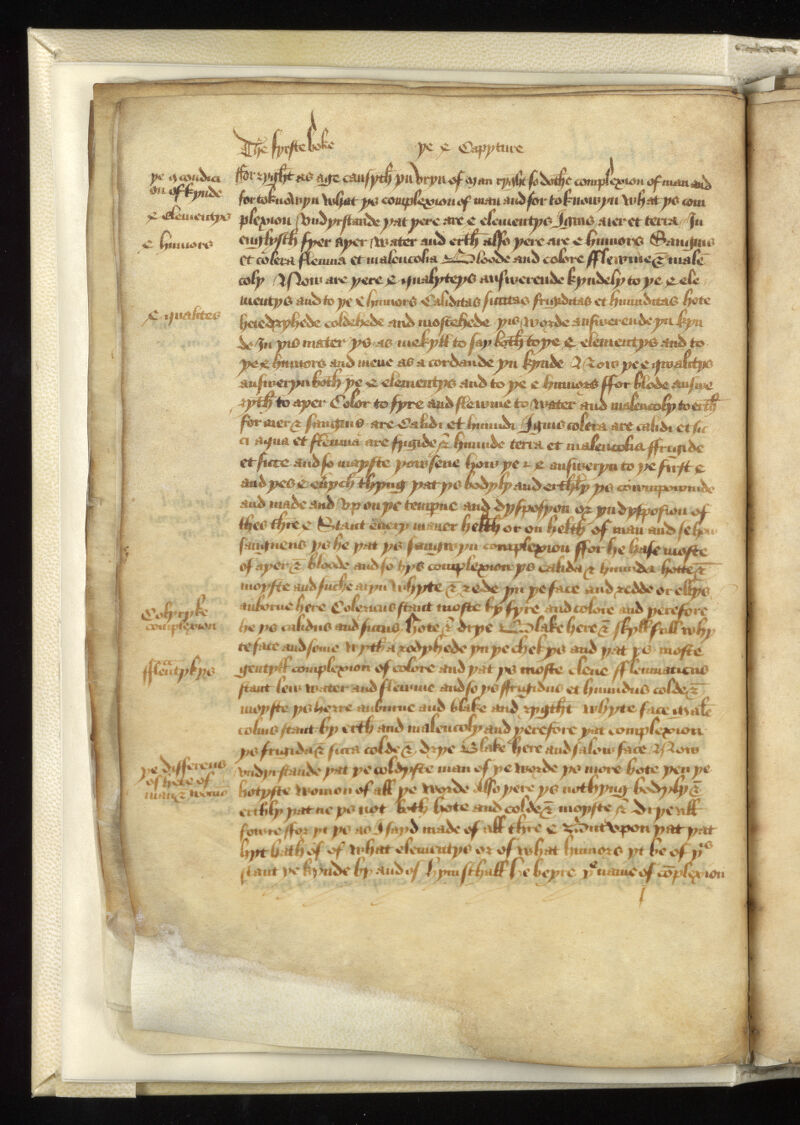 The fyrste boke
ye 4 Capyture
ye 4 condici
on of kynde
4 elementys
4 humors
4 qualites
Colrryke
complexion
ffleutykys
ye differens
of here of
man & woma
ffor ryght as age causyth yn vryn of man ryght so dothe complexion of man and
for to knowyn what ys complexion of man and for to knowyn what ys com
plexion vndyrstande yat yere are 4 elementys Ignis aier et terra In
englysch fyer ayer water and erth also yere are 4 humors Sanguis
et colera flemma et malencolia Bloode and colore fflewme & male
coly Now are yere 4 qualyteys answerende kyndely to ye 4 ele
mentys and to ye 4 humors Caliditas siccitas frigiditas et humiditas hote
hed dryhede coldehede and mostehede yis worde answerende yn kyn
de In yis mater ys as mekyll to say both to ye 4 elementys and to
ye 4 humors and meve as acordande yn kynde Now ye 4 qwalitys
answeryn both ye 4 elementys and to ye 4 humors ffor blode answe
ryth to ayer Color to fyre and flewme to water and malencoly to erth
for aier & sanguis are Calidi et humidi Ignis colera are calidi et sic
ci aqua et flemma are frigide & humide terra et malencolia ffrigide
et sicce and so mayste yow sene how ye 4 4 answeryn to ye furst 4
and yes 4 euych thyng yat ys bodyly and erthly ys compownde
and made and vpon ye tempur and dysposyon or yndysposion of
thes thre 4 Stant euery maner helth or on helth of man and se how
sanguens ys he yat ys sangwyn complexion ffor he hase moste
of ayer & bloode and so hys complexion ys calida & humida hotte &
moyste and suche aryn whyte & rede yn ye face and redde or ellys
auborne here Colericus stant moste by fyre and colore and yerefore
he ys calidus and siccus hote & drye Blake here & skyll fall why
te face and some wyth a rodyhede yn ye chekys and yat ys moste
gentyll complexion of colore and yat ys moste clene fflewmaticus
stant bew water and flewme and so ys ffrigidus et humidus colde &
moyste ys herre auburne and blake and rygtht whyte face Male
colius stant by erth and malencoly and yerefore yat complexion
ys frigida & sicca colde & drye Blake here and salow face Now
vndyrstande yat ye coldyste man of ye worde ys more hote yen ye
hotyste womon of all ye worde Also yere ys nothyng bodyly &
erthly yat ne ys not both hote and colde & moyste & drye all
fowre ffor yt ys as I sayd made of all thre 4 But vpon yat yat
hyt hath of of what elementys or of what humors yt be of yis
stant ye kynde by and of hym schall he beyre yr name of complexion